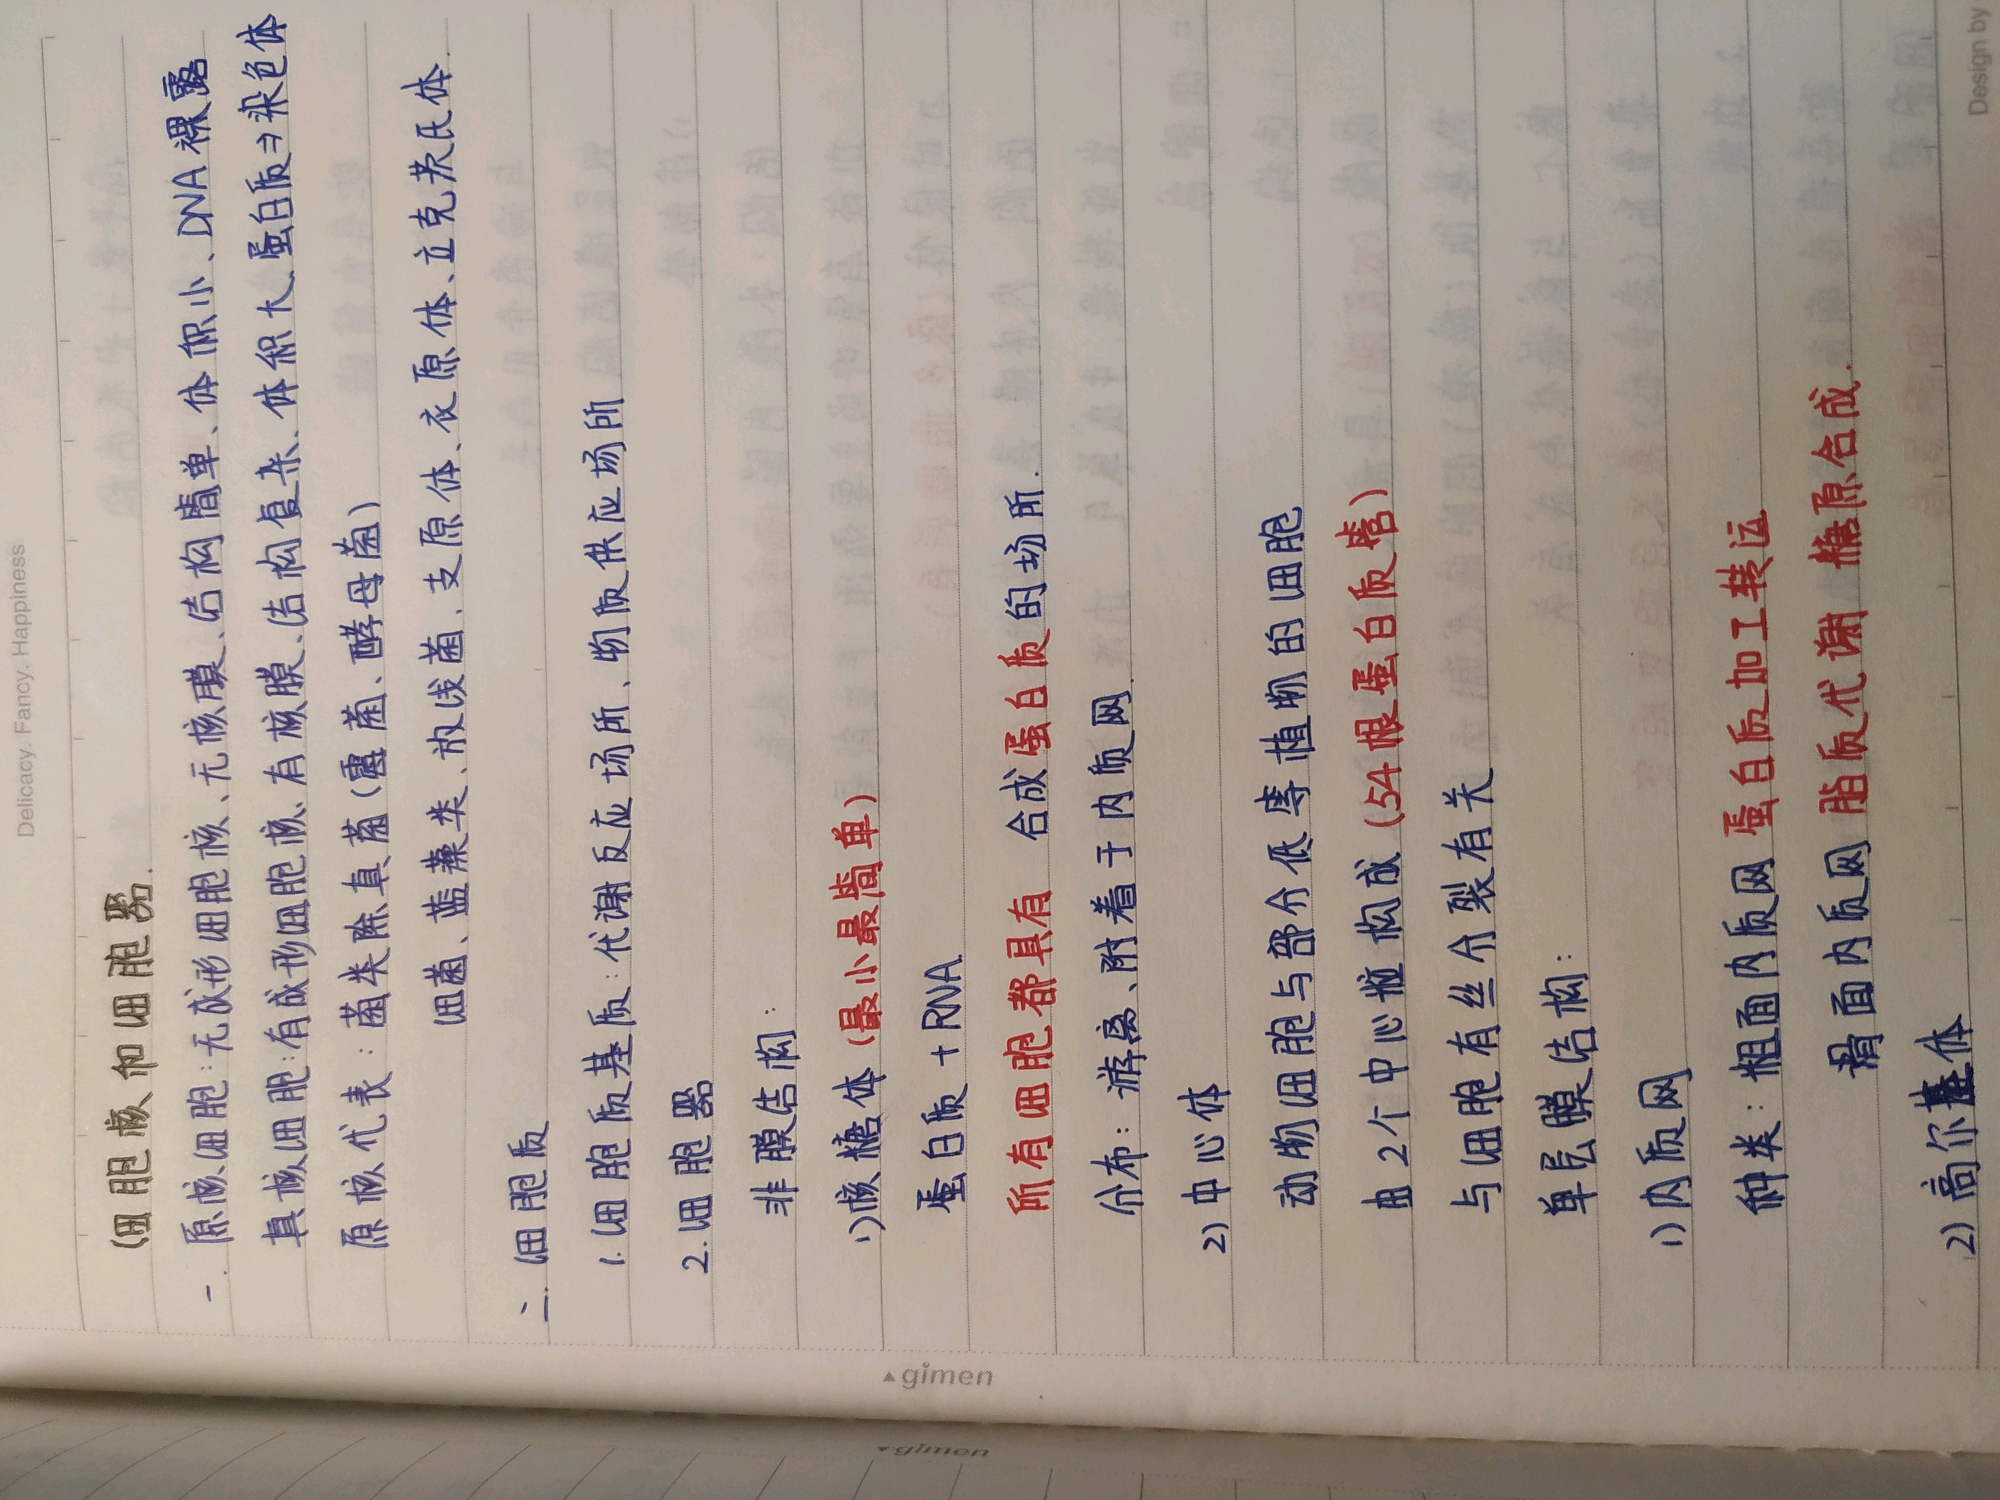 Delicacy. Fancy. Happiness
细胞核和细胞器.
一. 原核细胞:无成形细胞核、无核膜、结构简单、体积小、DNA裸露
真核细胞:有成形细胞核、有核膜、结构复杂、体积大、蛋白质⇒染色体
原核代表:菌类除真菌(霉菌、酵母菌)
细菌、蓝藻类、放线菌、支原体、衣原体、立克次氏体.
二. 细胞质
1.细胞质基质:代谢反应场所、物质供应场所
2.细胞器
非膜结构:
1)核糖体(最小最简单)
蛋白质+RNA
所有细胞都具有 合成蛋白质的场所.
分布:游离、附着于内质网.
2)中心体
动物细胞与部分低等植物的细胞
由2个中心粒构成(54根蛋白质管)
与细胞有丝分裂有关
单层膜结构:
1)内质网
种类:粗面内质网 蛋白质加工转运
滑面内质网 脂质代谢 糖原合成.
2)高尔基体
gimen
gimen
Design by